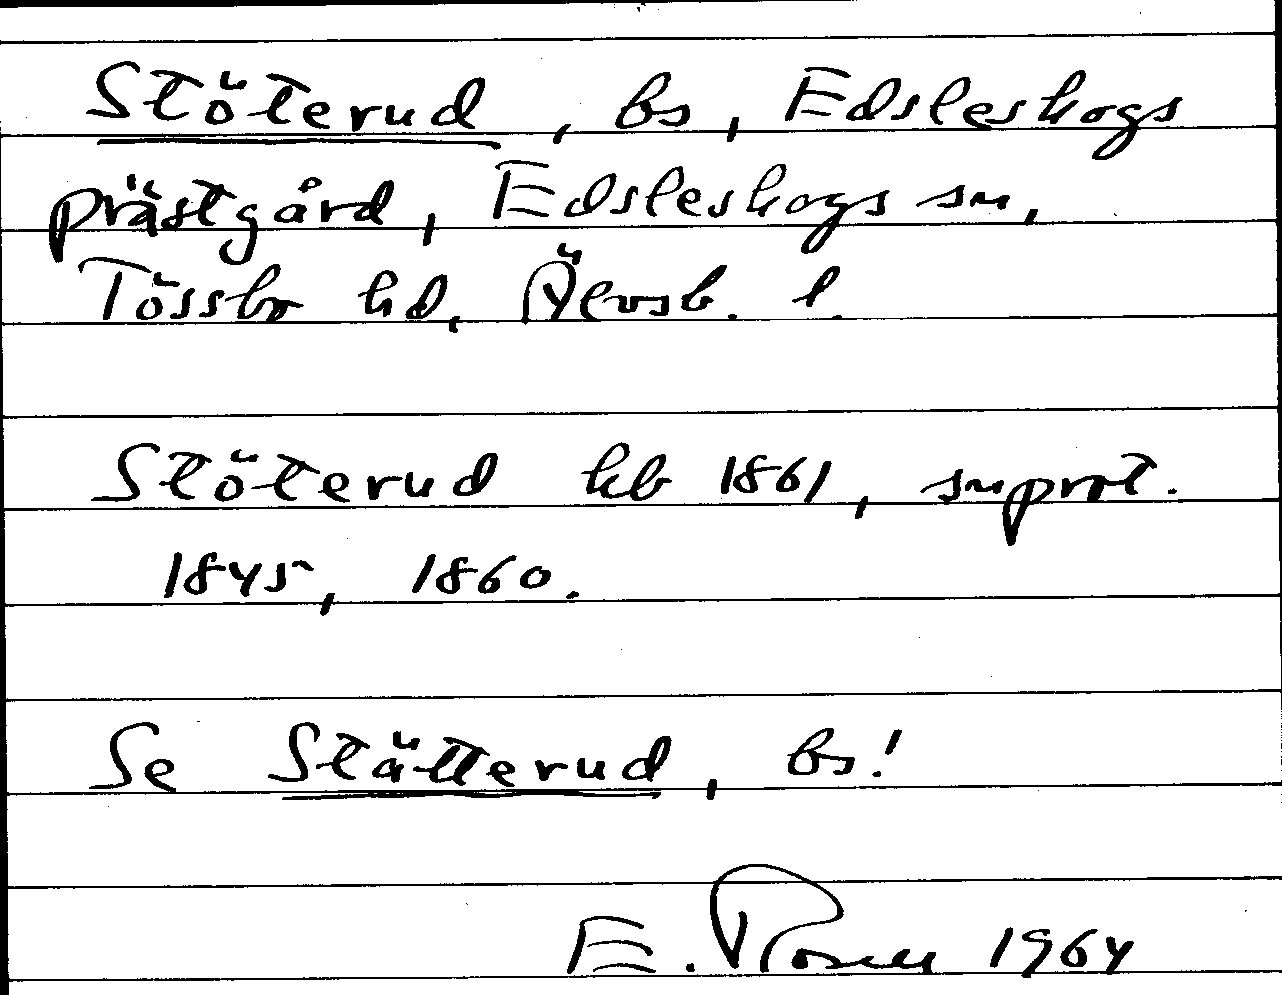 Stöterud, bs, Edsleskogs
prästgård, Edsleskogs sn,
Tössbo hd, Älvsb. l.
Stöterud hb 1861, snprot.
1845, 1860.
Se Stätterud, bs!
E. Rosell 1964